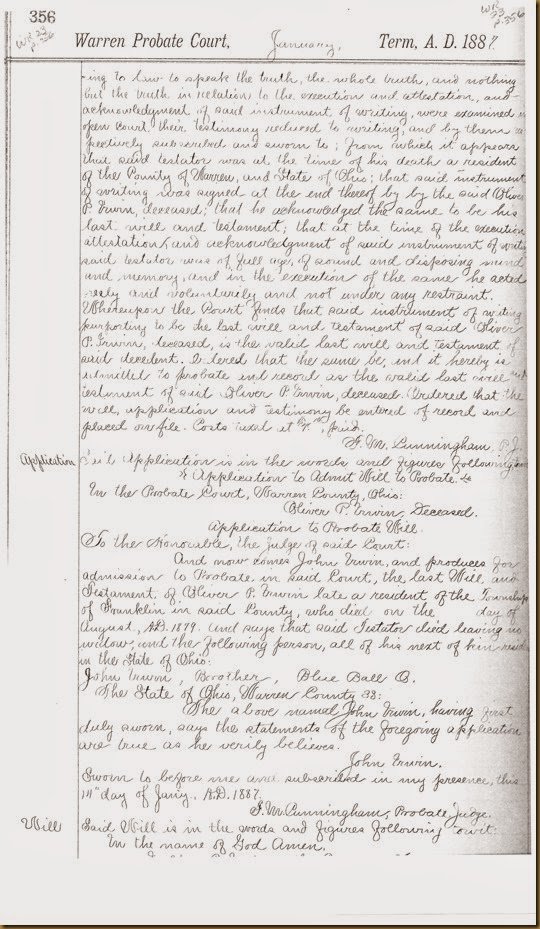 356
WR 23
P. 356
WR
23
P. 356
Warren Probate Court, January, Term, A. D. 1887.
-ing to law to speak the truth, the whole truth, and nothing
but the truth in relation to the execution and attestation, and
acknowledgment of said instrument of writing, were examined in
open court their testimony reduced to writing, and by them
spectively subscribed and sworn to; from which it appears
that said testator was at the time of his death a resident
of the County of Warren, and State of Ohio; that said instrument
of writing was signed at the end thereof by by the said Oliver
P. Irwin, deceased; that he acknowledged the same to be his
last will and testament; that at the time of the execution
attestation, and acknowledgment of said instrument of
said testator was of full age, of sound and disposing mind
and memory, and in the execution of the same he acted
and voluntarily and not under any restraint.
Whereupon the Court finds that said instrument of writing
purporting to be the last will and testament of said Oliver
P. Irwin, deceased, is the valid last will and testament of
said decedent. Ordered that the same be, and it hereby is
admitted to probate and record as the valid last will
testament of said Oliver P. Irwin, deceased. Ordered that the
will, application and testimony be entered of record and
placed on file. Costs taxed at paid.
Cunningham, P. J.
Application
Said Application is in the words and figures following
Application to Admit Will to Probate.
In the Probate Court, Warren County, Ohio:
Oliver P. Irwin, Deceased.
Application to Probate Will.
To the Honorable, the Judge of said Court:
And now comes John Irwin, and produces for
admission to Probate in said Court, the last Will and
Testament of Oliver P. Irwin late a resident of the Township
of Franklin in said County, who died on the day of
August, A.D. 1879. and says that said Testator died leaving no
widow, and the following person, all of his next of kin
in the State of Ohio:
John Irwin, Brother, Blue Ball O.
The State of Ohio, Warren County SS:
The above named John Irwin, having first
duly sworn, says the statements of the foregoing application
are true as he verily believes.
John Irwin.
Sworn to before me and subscribed in my presence, this
14" day of Jany. A.D. 1887.
Cunningham, Probate Judge.
Will
Said Will is in the words and figures following towit:
In the name of God Amen.